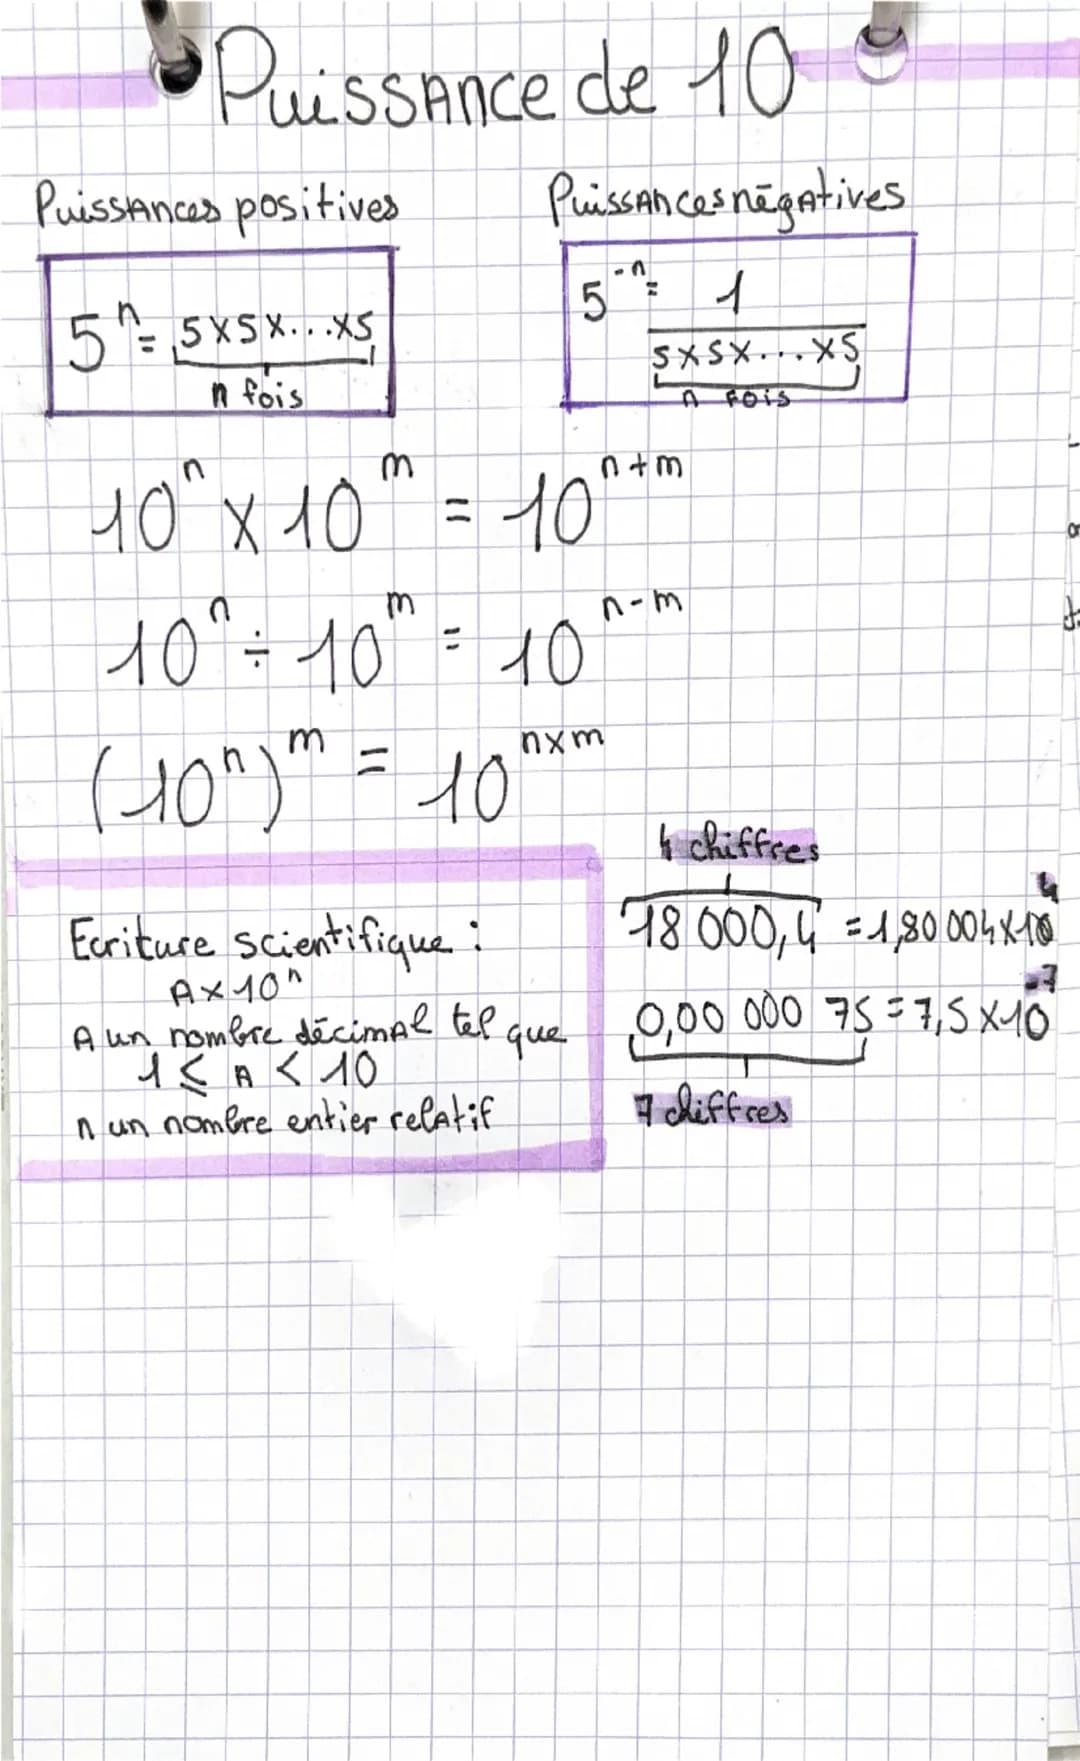 Puissance de 10
Puissances positives
5ⁿ = 5x5x...x5
n fois
Puissances négatives
5⁻ⁿ = 1
5x5x...x5
n fois
10ⁿ x 10ᵐ = 10ⁿ⁺ᵐ
10ⁿ ÷ 10ᵐ = 10ⁿ⁻ᵐ
(10ⁿ)ᵐ = 10ⁿˣᵐ
Ecriture scientifique :
A x 10ⁿ
A un nombre décimal tel que
1 ≤ A < 10
n un nombre entier relatif
4 chiffres
18 000,4 = 1,80 004 x 10⁴
0,00 000 75 = 7,5 x 10⁻⁷
7 chiffres